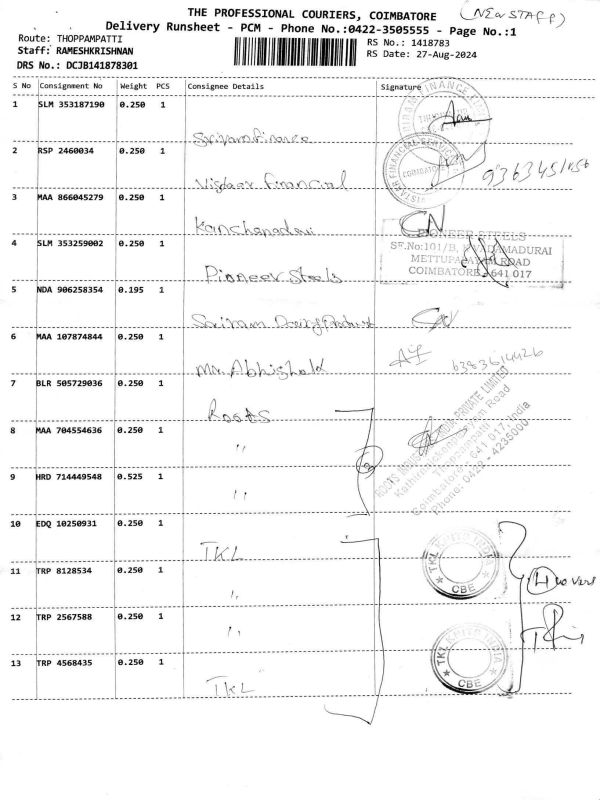 THE PROFESSIONAL COURIERS, COIMBATORE (NEw STAFF)
Delivery Runsheet - PCM - Phone No.:0422-3505555 - Page No.:1
Route: THOPPAMPATTI RS No.: 1418783
Staff: RAMESHKRISHNAN RS Date: 27-Aug-2024
DRS No.: DCJB141878301
S No Consignment No Weight PCS Consignee Details Signature
1 SLM 353187190 0.250 1
Finance
2 RSP 2460034 0.250 1
Financial
3 MAA 866045279 0.250 1
Kanchanadevi
4 SLM 353259002 0.250 1
Pioneer Steels
PIONEER STEELS
SF.No:101/B,
COIMBATORE - 641 017
5 NDA 906258354 0.195 1
Sriram
6 MAA 107874844 0.250 1
Mr. Abhishek
7 BLR 505729036 0.250 1
Roots
8 MAA 704554636 0.250 1
"
3
PRIVATE LIMITED
Thoppampatti
Coimbatore - 641 017. India
Phone: 0422 - 4235000
9 HRD 714449548 0.525 1
"
10 EDQ 10250931 0.250 1
TKL
11 TRP 8128534 0.250 1
"
4 covers
CBE
12 TRP 2567588 0.250 1
"
13 TRP 4568435 0.250 1
TKL
CBE